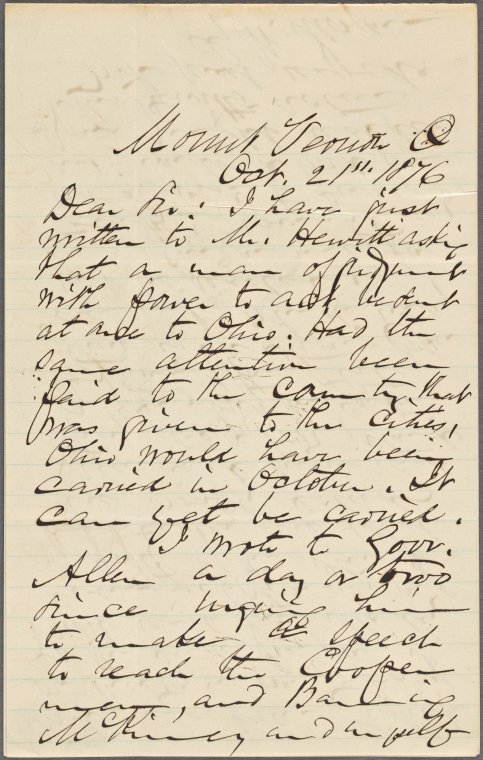 Mount Vernon O
Oct. 21st. 1876
Dear Sir: I have just
written to Mr. Hewitt asking
that a man of judgment
with power to act be sent
at once to Ohio. Had the
same attention been
paid to the country, that
was given to the cities,
Ohio would have been
carried in October. It
can yet be carried.
I wrote to Govr.
Allen a day or two
since urging him
to make a speech
to reach the Cooper
men, and Banning
McKinney and myself